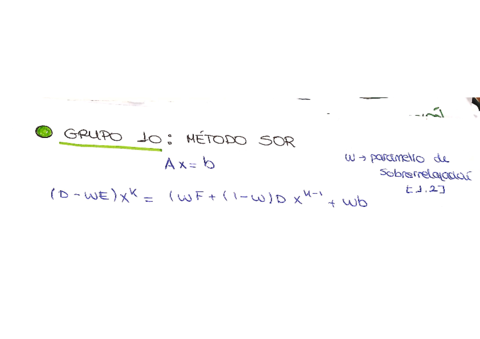 GRUPO 10: MÉTODO SOR
Ax = b
w → parametro de
sobrerrelajación
[1,2]
(D - wE)x^k = (wF + (1-w)D x^{k-1} + wb